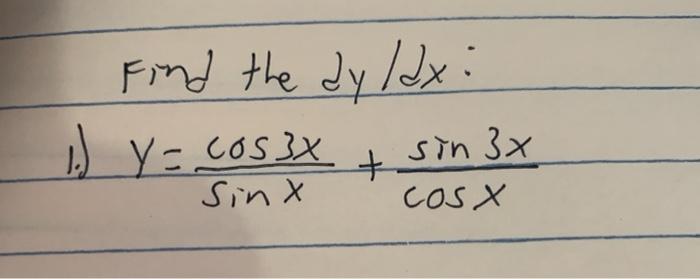 Find the dy/dx:
1.) y = cos 3x / sin x + sin 3x / cos x